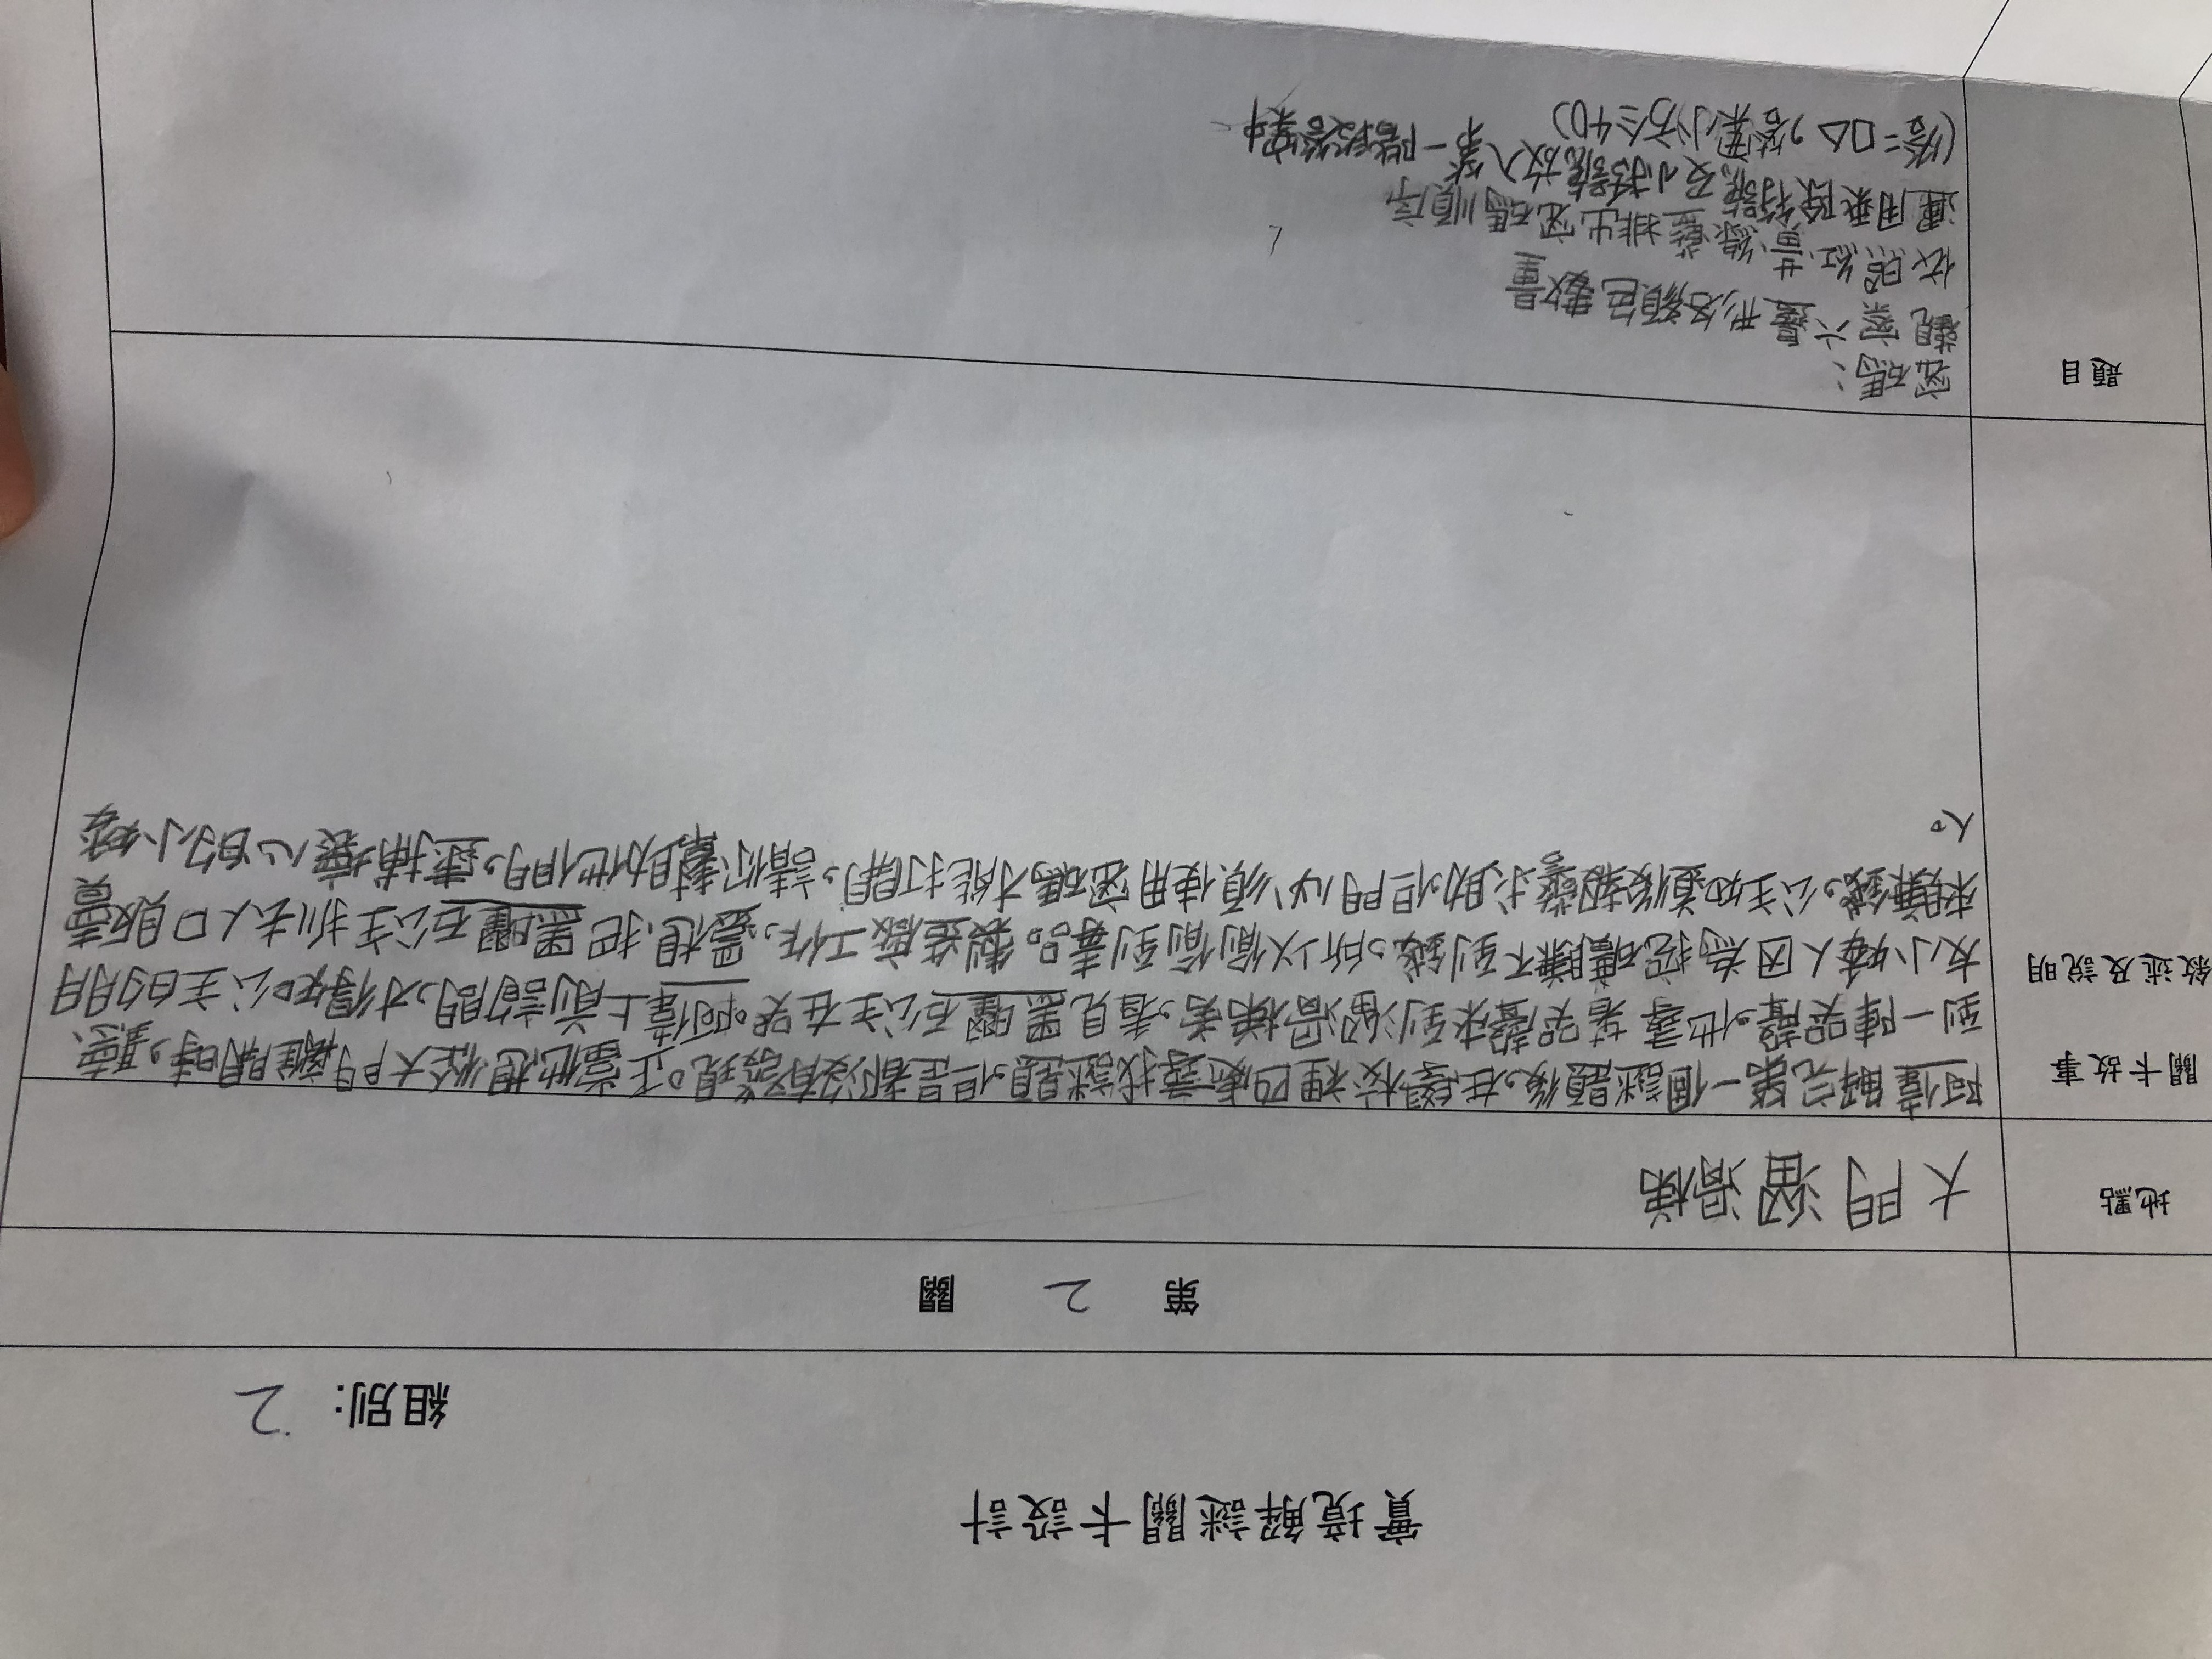 實境解謎關卡設計
組別: 2
第 2 關
地點
大門溜滑梯
關卡故事
敘述及說明
阿偉解完第一個謎題後，在學校裡四處尋找謎題，但是都沒有發現。正當他想從大門離開時，聽
到一陣哭聲，他尋著哭聲來到溜滑梯旁，看見黑曜石公主在哭。阿偉上前詢問，才得知公主的朋
友小矮人因為挖礦賺不到錢，所以偷偷到毒品製造廠工作，還想把黑曜石公主抓去人口販賣
來賺錢，公主知道後報警求助，但門必須使用密碼才能打開，請你幫助他們，逮捕壞心的小矮
人。
題目
密碼：
觀察六邊形各顏色數量
依照紅、黃、綠、藍排出密碼順序
運用乘除符號及小括號放入第一階段答案中
(答=□△，答案小方≦40)